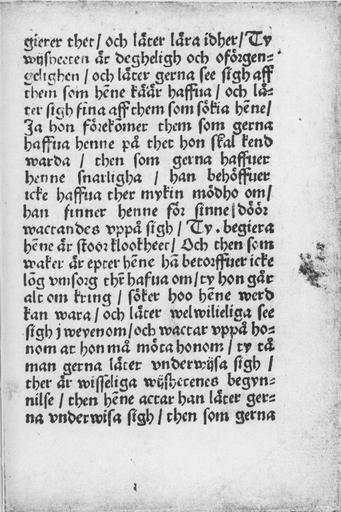 gierer thet / och låter lära idher / Ty
wijsheeten är degheligh och oförgen=
gelighen / och låter gerna see sigh aff
them som hẽne käär haffua / och lå=
ter sigh fina aff them som sökia hẽne /
Ja hon förekõmer them som gerna
haffua henne på ther hon skal kend
warda / then som gerna haffuer
henne snarligha / han behöffuer
icke haffua ther mykin mödho om /
han finner henne för sinne döör
wactandes vppå sigh / Ty . begiera
hẽne är stoor klookheet / Och then som
waker är epter hẽne hã betorffuer icke
lõg vmsorg thr̃ hafua om / ty hon går
alt om kring / söker hoo hẽne werd
kan wara / och låter welwilieliga see
sigh j weyenom / och wactar vppå ho=
nom at hon må möta honom / ty tå
man gerna låter vnderwijsa sigh /
ther är wisseliga wijshetenes begyn=
nilse / then hẽne actar han låter ger=
na vnderwisa sigh / then som gerna